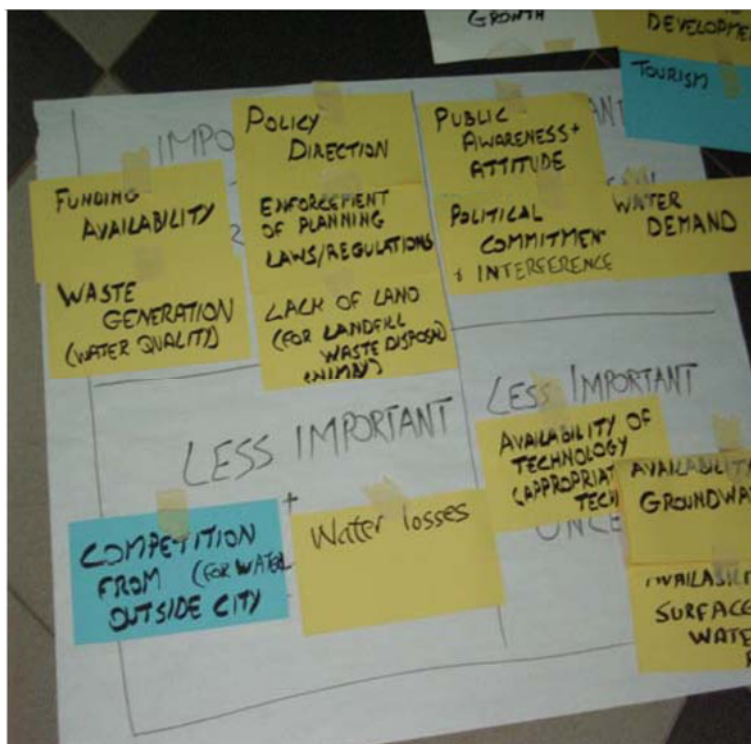 GROWTH
DEVELOPME
TOURISM
IMPO
ANT
POLICY
DIRECTION
PUBLIC
AWARENESS+
ATTITUDE
FUNDING
AVAILABILITY
ENFORCEMENT
OF PLANNING
LAWS/REGULATIONS
POLITICAL
COMMITMEN
+ INTERFERENCE
WATER
DEMAND
WASTE
GENERATION
(WATER QUALITY)
LACK OF LAND
(FOR LANDFILL
WASTE DISPOSAL)
(NIMBY)
LESS IMPORTANT
+
LESS IMPORTANT
AVAILABILITY OF
TECHNOLOGY
(APPROPRIAT
TECH
UNCE
AVAILABILIT
GROUNDWAT
COMPETITION
FROM (FOR WATER
OUTSIDE CITY
Water losses
AVAILABILI
SURFACE
WATE